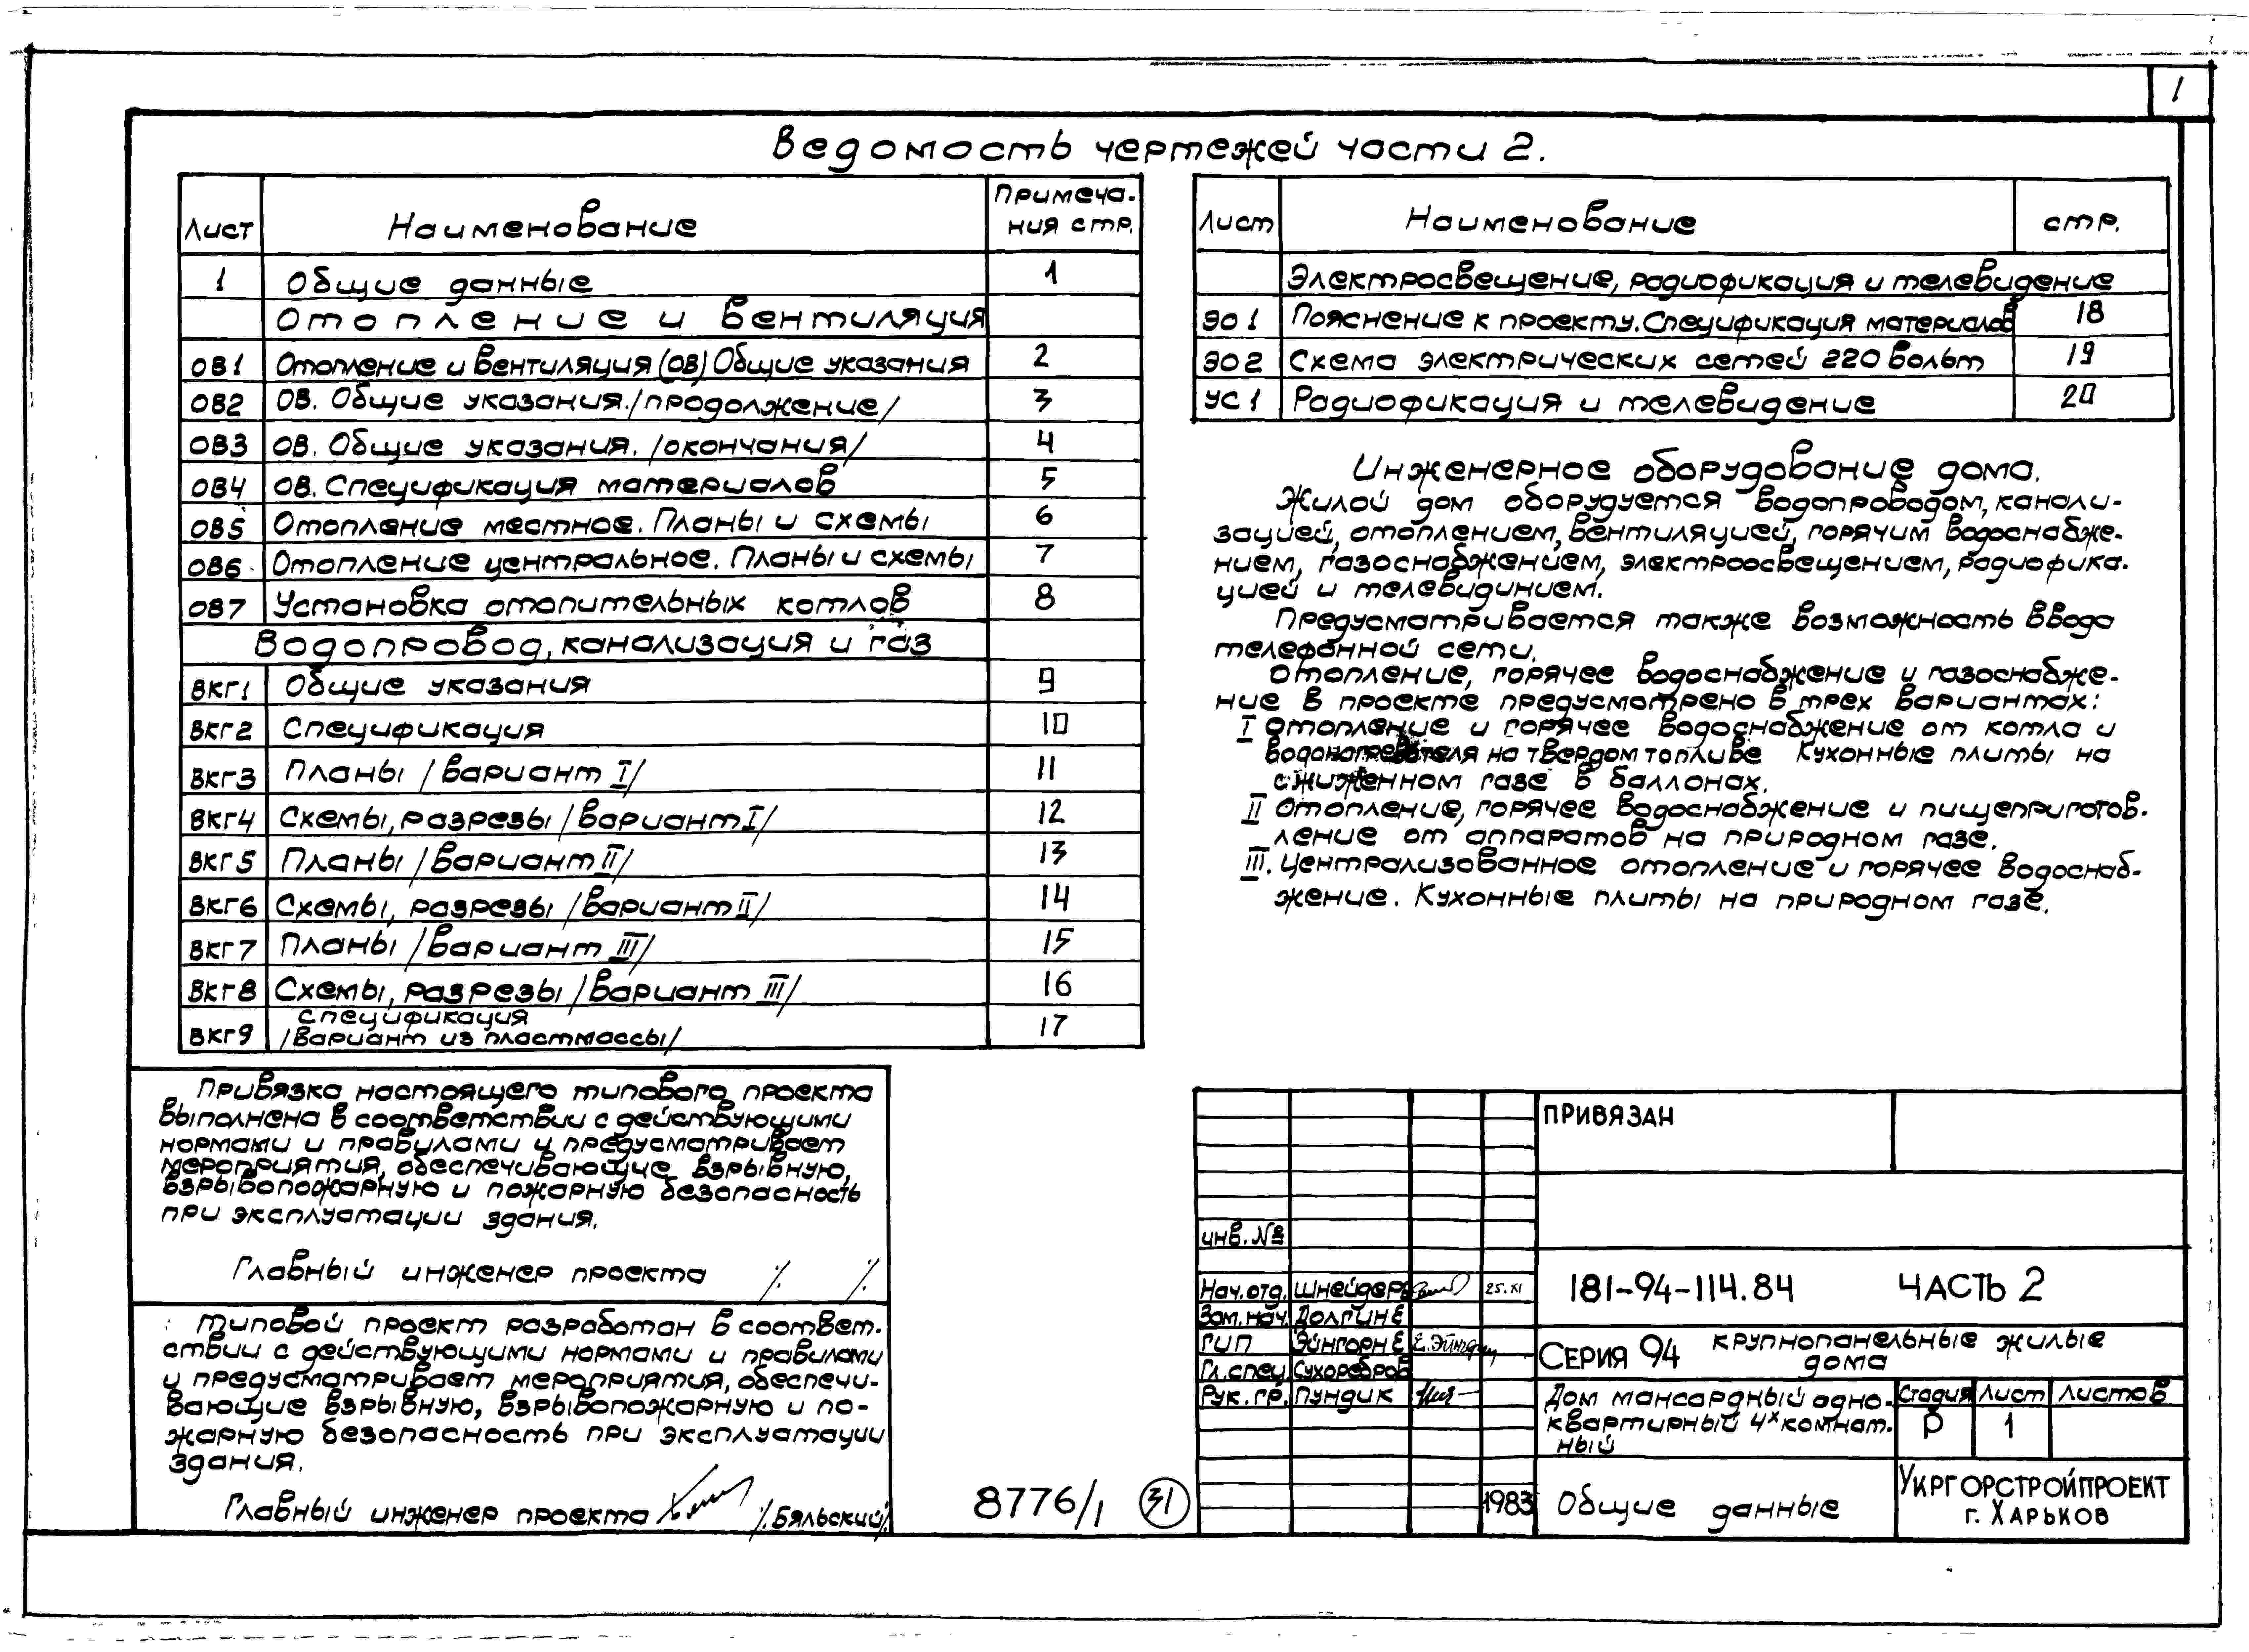 1
Ведомость чертежей части 2.
Лист Наименование Примеча-
ния стр.
1 Общие данные 1
Отопление и вентиляция
ОВ1 Отопление и вентиляция (ОВ) Общие указания 2
ОВ2 ОВ. Общие указания. /продолжение/ 3
ОВ3 ОВ. Общие указания. /окончания/ 4
ОВ4 ОВ. Спецификация материалов 5
ОВ5 Отопление местное. Планы и схемы 6
ОВ6 Отопление центральное. Планы и схемы 7
ОВ7 Установка отопительных котлов 8
Водопровод, канализация и газ
ВКГ1 Общие указания 9
ВКГ2 Спецификация 10
ВКГ3 Планы /вариант I/ 11
ВКГ4 Схемы, разрезы /вариант I/ 12
ВКГ5 Планы /вариант II/ 13
ВКГ6 Схемы, разрезы /вариант II/ 14
ВКГ7 Планы /вариант III/ 15
ВКГ8 Схемы, разрезы /вариант III/ 16
ВКГ9 спецификация
/вариант из пластмассы/ 17
Лист Наименование стр.
Электросвещение, радиофикация и телевидение
ЭО1 Пояснение к проекту. Спецификация материалов 18
ЭО2 Схема электрических сетей 220 вольт 19
УС1 Радиофикация и телевидение 20
Инженерное оборудование дома.
Жилой дом оборудуется водопроводом, канали-
зацией, отоплением, вентиляцией, горячим водоснабже-
нием, газоснабжением, электроосвещением, радиофика-
цией и телевидинием.
Предусматривается также возможность ввода
телефонной сети.
Отопление, горячее водоснабжение и газоснабже-
ние в проекте предусмотрено в трех вариантах:
I Отопление и горячее водоснабжение от котла и
водонагревателя на твердом топливе Кухонные плиты на
сжиженном газе в баллонах.
II Отопление, горячее водоснабжение и пищеприготов-
ление от аппаратов на природном газе.
III. Централизованное отопление и горячее водоснаб-
жение. Кухонные плиты на природном газе.
Привязка настоящего типового проекта
выполнена в соответствии с действующими
нормами и правилами и предусматривает
мероприятия, обеспечивающие взрывную,
взрывопожарную и пожарную безопасность
при эксплуатации здания.
Главный инженер проекта /. /.
Типовой проект разработан в соответ-
ствии с действующими нормами и правилами
и предусматривает мероприятия, обеспечи-
вающие взрывную, взрывопожарную и по-
жарную безопасность при эксплуатации
здания.
Главный инженер проекта /.Бяльский/.
8776/1 31
ПРИВЯЗАН
инв. №
Нач. отд. Шнейдер 25.XI
Зам. нач. Долгин Е
ГИП Эйнгорн Е
Гл. спец. Сухоребров
Рук. гр. Пундик
1983
181-94-114.84 ЧАСТЬ 2
СЕРИЯ 94 крупнопанельные жилые
дома
Дом мансардный одно-
квартирный 4х комнат-
ный
Стадия Лист Листов
Р 1
Общие данные
УКРГОРСТРОЙПРОЕКТ
г. ХАРЬКОВ